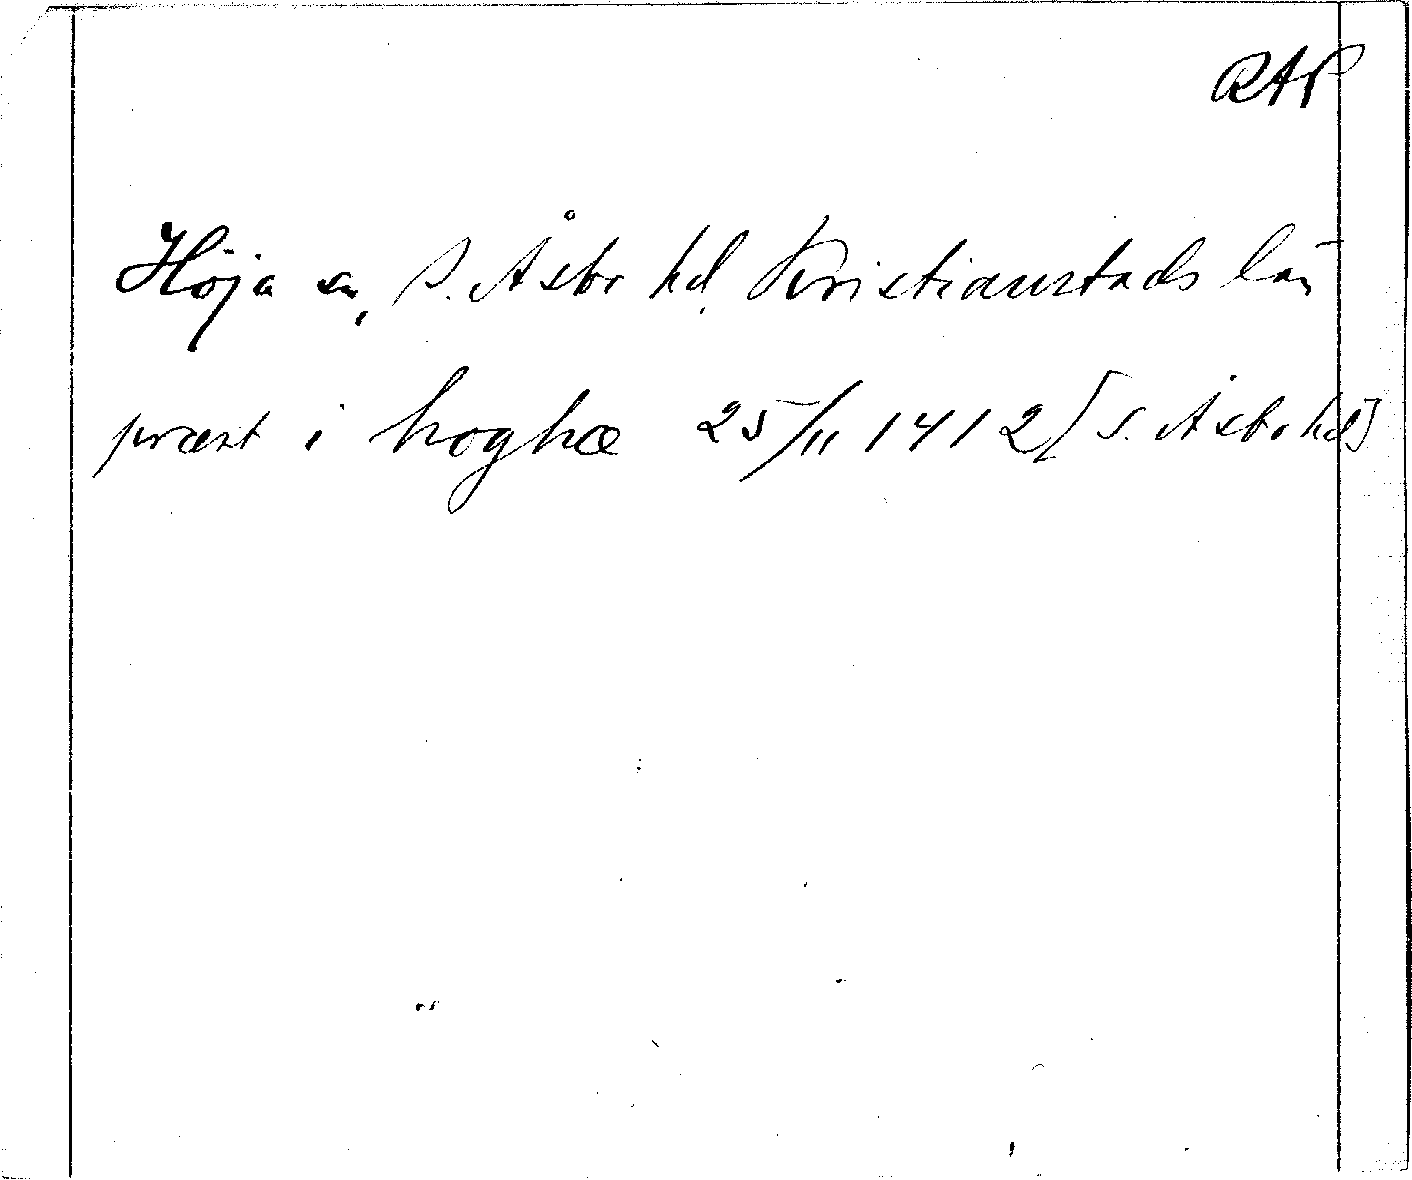 RAP
Höja sn, S. Åsbo hd, Kristianstads län
præst i hoghæ 25/11 1412 [S. Åsbo hd]